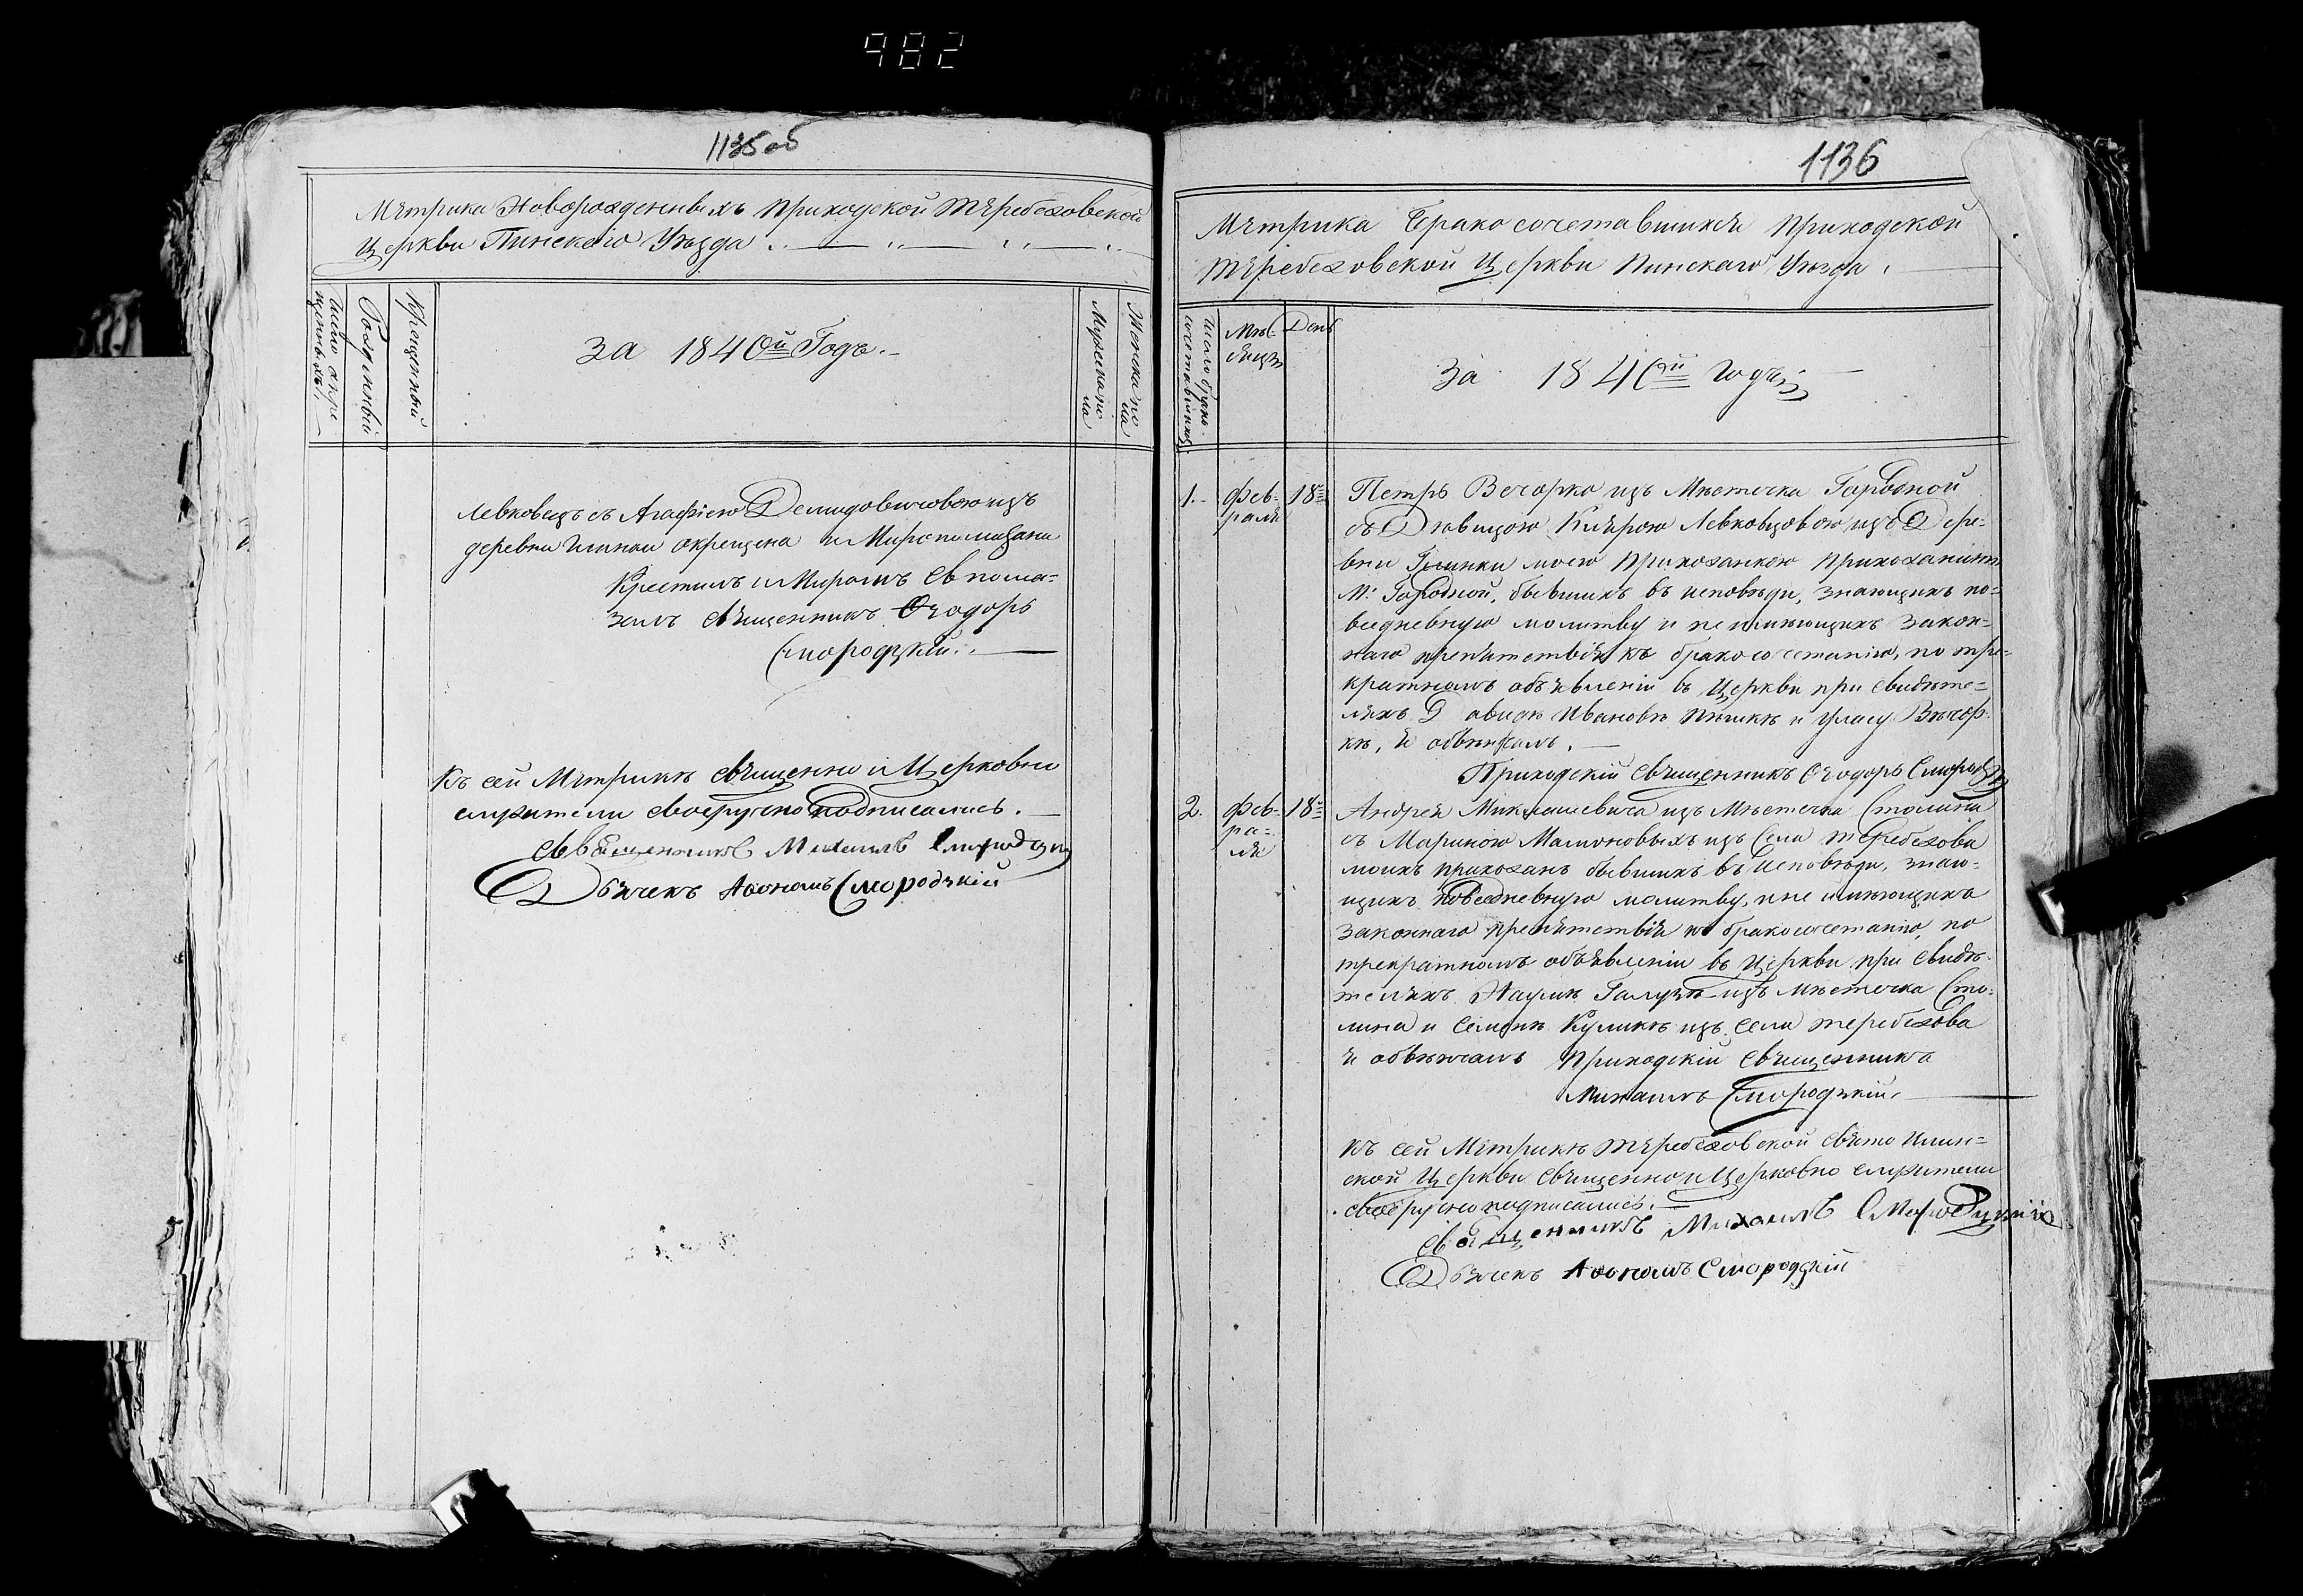 982
1135об
Метрика Новорожденныхъ Приходской Теребежовской
Церкви Пинскаго Уѣзда
Число окре
щенныхъ
Рожденный
Крещенный
За 1840ой Годъ.
Мужеска по
ла
Женска по
ла
Левковецъ съ Агафіею Демидовичовою изъ
деревни окрещена и Миропомазана
Крестилъ и Миромъ Св пома=
залъ Священникъ Ѳеодоръ
Смородзкій.
Къ сей Метрикѣ Священно и Церковно
служители своеручно подписались.
Священникъ Михаилъ
Дьячекъ Аѳонасъ Смородзкій
1136
Метрика Бракосочетавшихся Приходской
Теребежовской Церкви Пинскаго Уѣзда.
Число брако
сочетавшихся
Мѣ-
сяцъ
День
За 1840ой годъ
1. Фев-
раля
18
Петръ Вечорко изъ Мѣстечка Городной
съ Дѣвицою Клярою Левковцовою изъ Дере-
вни моею Прихожанкою
М: Городной, бывшихъ въ исповѣди, знающихъ по-
вседневную молитву и неимѣющихъ закон-
наго препятствія къ бракосочетанію, по тре-
кратномъ объявленіи въ Церкви при свидѣте-
ляхъ Давидѣ Ивановѣ и Уласу Вечор-
кѣ, я обвѣнчалъ.
Приходскій Священникъ Ѳеодоръ
2. Фев-
ра-
ля
18
Андрей Миклашевича изъ Мѣстечка Столина
съ Мариною Мамоновыхъ изъ Села Теребежова
моихъ прихожанъ бывшихъ въ Исповѣди, знаю-
щихъ повседневную молитву, и не имѣющихъ
законнаго препятствія къ бракосочетанію, по
трекратномъ объявленіи въ Церкви при Свидѣ-
теляхъ Наумѣ изъ Мѣстечка Сто-
лина и Семенѣ Куликѣ изъ Села Теребежова
я обвѣнчалъ Приходскій Священникъ
Михаилъ Смородзкій.
Къ сей Метрикѣ Теребежовской Свято Ильин-
ской Церкви Священно и Церковно служители
своеручно подписались.
Священникъ Михаилъ Смородзкій
Дьячекъ Аѳонасъ Смородзкій